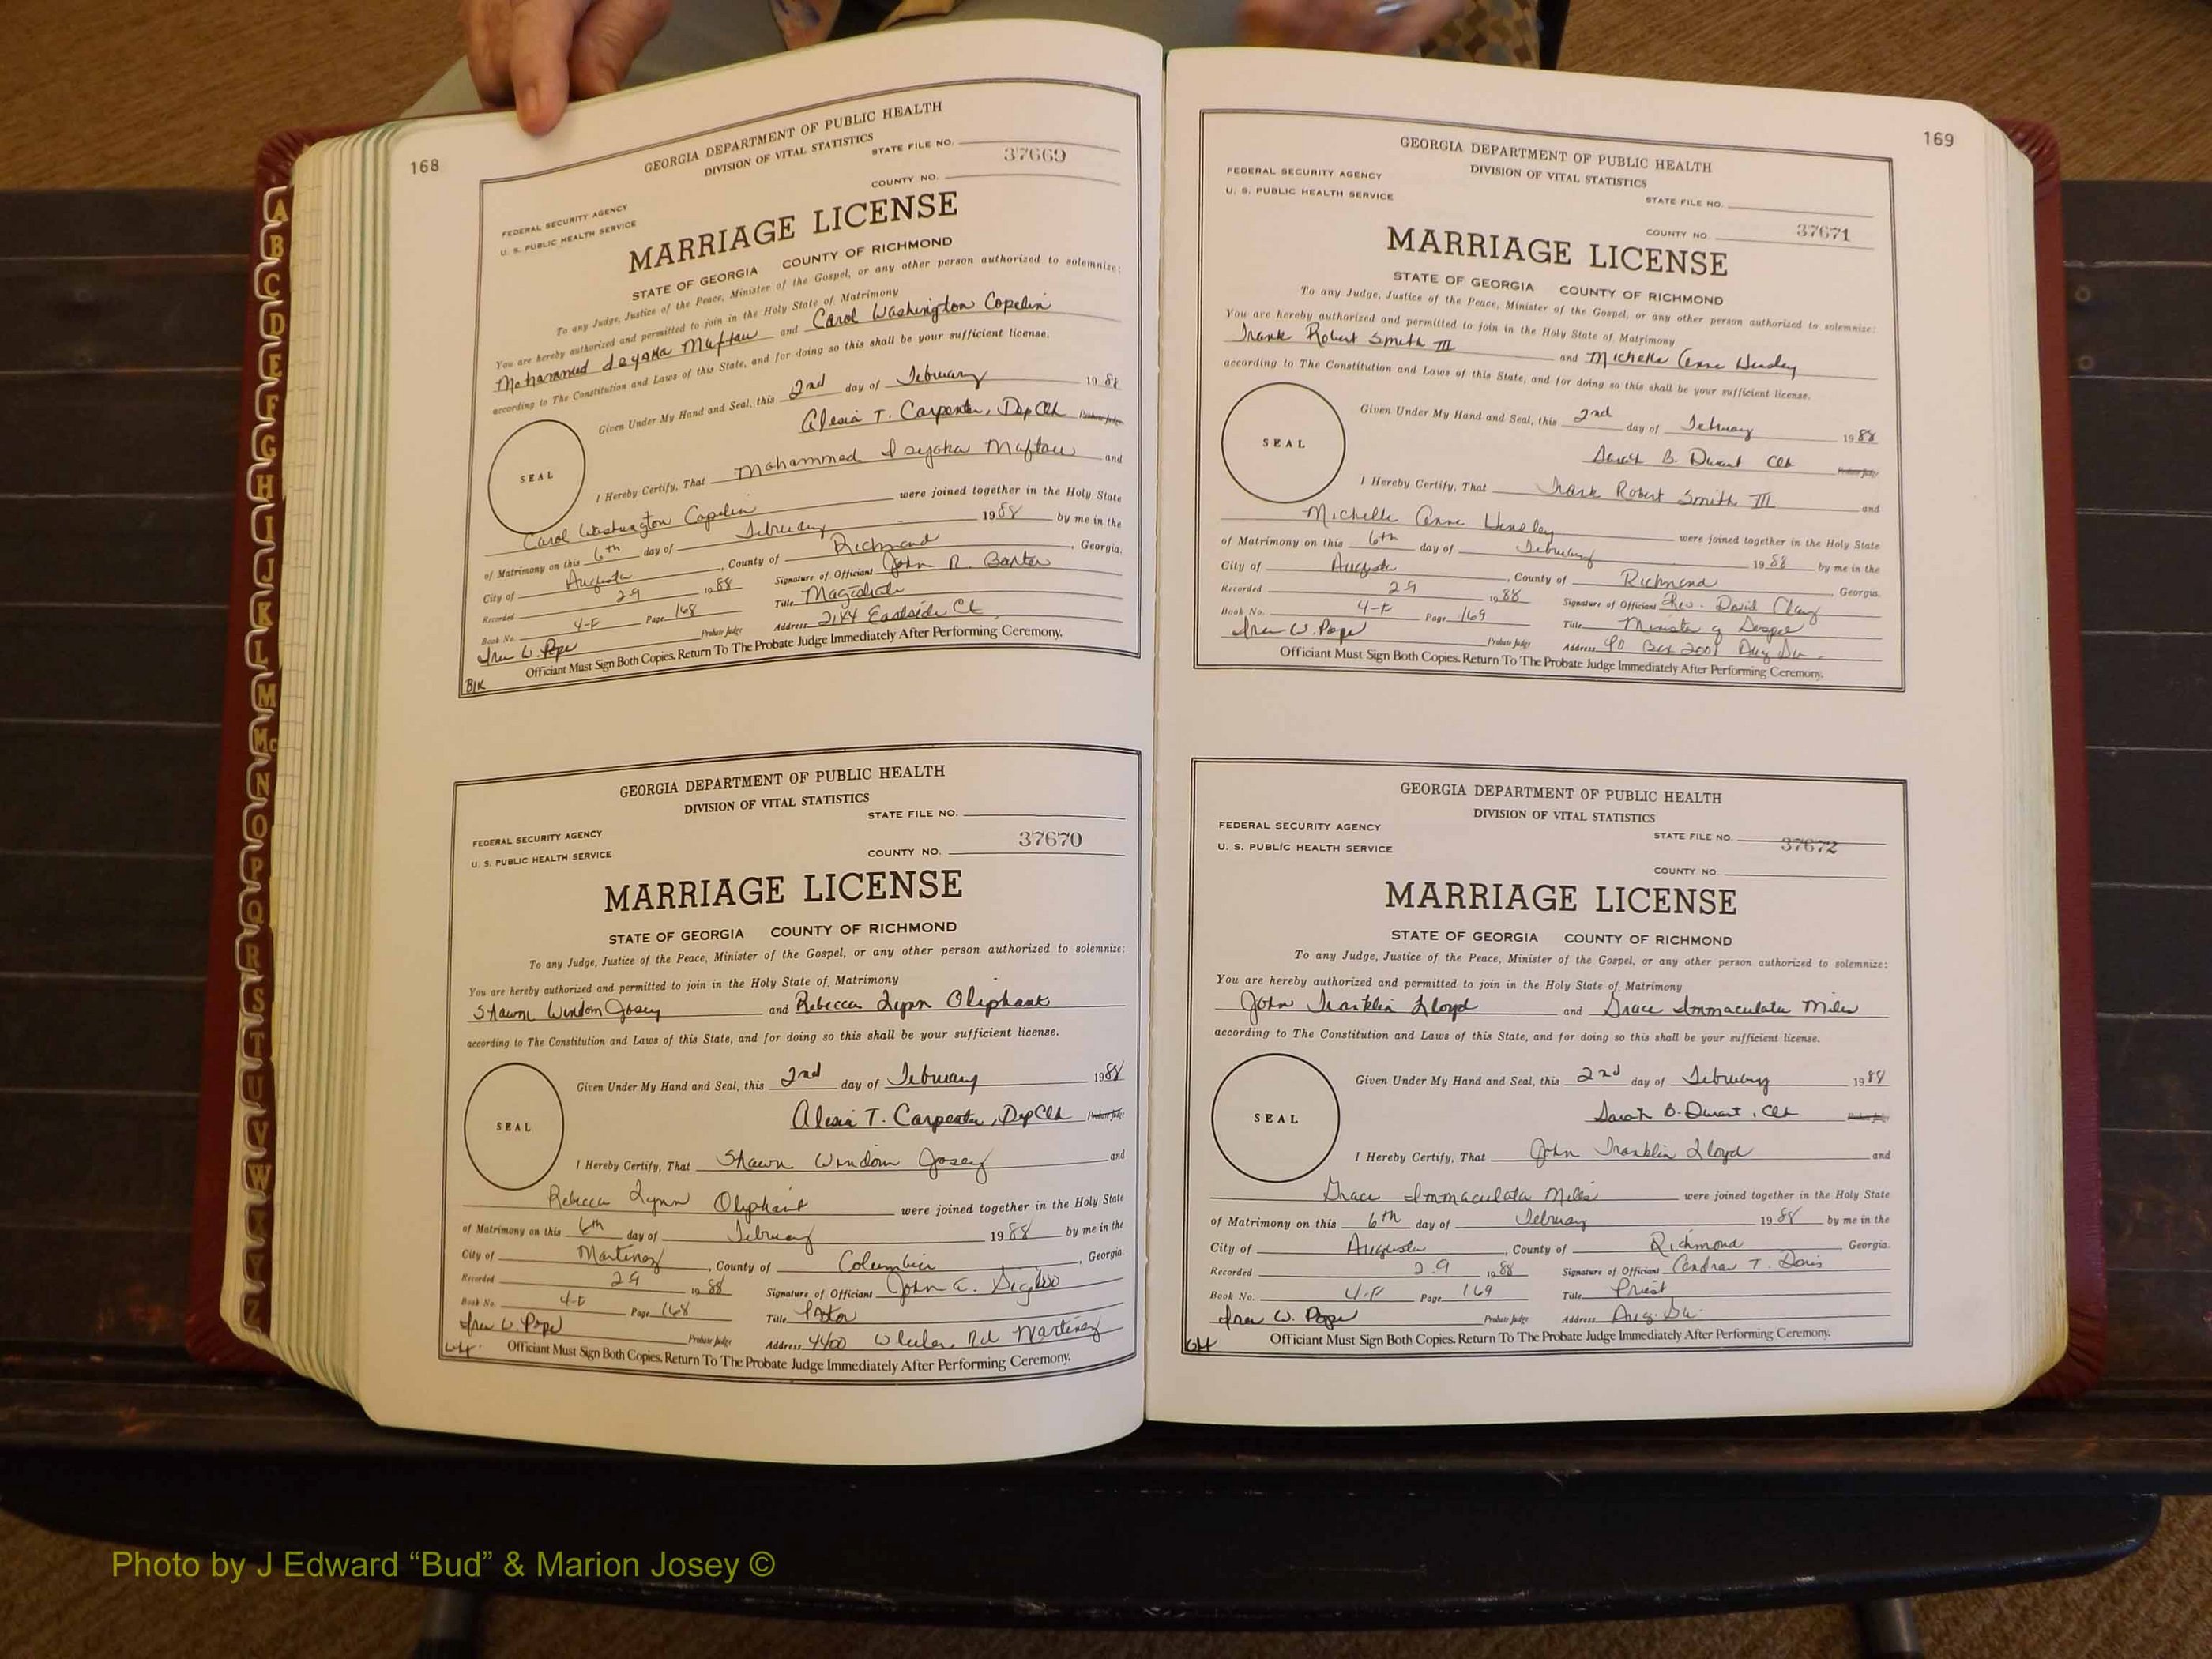 168
GEORGIA DEPARTMENT OF PUBLIC HEALTH
DIVISION OF VITAL STATISTICS
STATE FILE NO.
37669
COUNTY NO.
FEDERAL SECURITY AGENCY
U. S. PUBLIC HEALTH SERVICE
MARRIAGE LICENSE
STATE OF GEORGIA COUNTY OF RICHMOND
To any Judge, Justice of the Peace, Minister of the Gospel, or any other person authorized to solemnize:
You are hereby authorized and permitted to join in the Holy State of Matrimony
Mohammed Isyaka Maftau and Carol Washington Copelin
according to The Constitution and Laws of this State, and for doing so this shall be your sufficient license.
Given Under My Hand and Seal, this 2nd day of February 1988
Alesia T. Carpenter, Dep Clk Probate Judge
SEAL
I Hereby Certify, That Mohammed Isyaka Maftau and
Carol Washington Copelin were joined together in the Holy State
of Matrimony on this 6th day of February 1988 by me in the
City of Augusta, County of Richmond, Georgia.
Recorded 2-9 1988 Signature of Officiant John R. Baxter
Book No. 4-F Page 168 Title Magistrate
Probate Judge Address 2144 Eastside Ct
Officiant Must Sign Both Copies. Return To The Probate Judge Immediately After Performing Ceremony.
Blk
GEORGIA DEPARTMENT OF PUBLIC HEALTH
DIVISION OF VITAL STATISTICS
STATE FILE NO.
FEDERAL SECURITY AGENCY
37670
U. S. PUBLIC HEALTH SERVICE
COUNTY NO.
MARRIAGE LICENSE
STATE OF GEORGIA COUNTY OF RICHMOND
To any Judge, Justice of the Peace, Minister of the Gospel, or any other person authorized to solemnize:
You are hereby authorized and permitted to join in the Holy State of Matrimony
Shawn Windom Josey and Rebecca Lynn Oliphant
according to The Constitution and Laws of this State, and for doing so this shall be your sufficient license.
Given Under My Hand and Seal, this 2nd day of February 1988
Alesia T. Carpenter, Dep Clk Probate Judge
SEAL
I Hereby Certify, That Shawn Windom Josey and
Rebecca Lynn Oliphant were joined together in the Holy State
of Matrimony on this 6th day of February 1988 by me in the
City of Martinez, County of Columbia, Georgia.
Recorded 2-9 1988 Signature of Officiant John E.
Book No. 4-F Page 168 Title Pastor
W. Pope Probate Judge Address 4400 Wheeler Rd Martinez
Officiant Must Sign Both Copies. Return To The Probate Judge Immediately After Performing Ceremony.
169
GEORGIA DEPARTMENT OF PUBLIC HEALTH
DIVISION OF VITAL STATISTICS
FEDERAL SECURITY AGENCY
U. S. PUBLIC HEALTH SERVICE
STATE FILE NO.
COUNTY NO. 37671
MARRIAGE LICENSE
STATE OF GEORGIA COUNTY OF RICHMOND
To any Judge, Justice of the Peace, Minister of the Gospel, or any other person authorized to solemnize:
You are hereby authorized and permitted to join in the Holy State of Matrimony
Frank Robert Smith III and Michelle Anne Hensley
according to The Constitution and Laws of this State, and for doing so this shall be your sufficient license.
Given Under My Hand and Seal, this 2nd day of February 1988
Sarah B. Durant Clk Probate Judge
SEAL
I Hereby Certify, That Frank Robert Smith III and
Michelle Anne Hensley were joined together in the Holy State
of Matrimony on this 6th day of February 1988 by me in the
City of Augusta, County of Richmond Georgia.
Recorded 2-9 1988 Signature of Officiant Rev. David
Book No. 4-F Page 169 Title Minister of Gospel
W. Pope Probate Judge Address PO Box 2001 Aug Ga
Officiant Must Sign Both Copies. Return To The Probate Judge Immediately After Performing Ceremony.
GEORGIA DEPARTMENT OF PUBLIC HEALTH
DIVISION OF VITAL STATISTICS
FEDERAL SECURITY AGENCY
STATE FILE NO. 37672
U. S. PUBLIC HEALTH SERVICE
COUNTY NO.
MARRIAGE LICENSE
STATE OF GEORGIA COUNTY OF RICHMOND
To any Judge, Justice of the Peace, Minister of the Gospel, or any other person authorized to solemnize:
You are hereby authorized and permitted to join in the Holy State of Matrimony
John Franklin Lloyd and Grace Immaculata Miles
according to The Constitution and Laws of this State, and for doing so this shall be your sufficient license.
Given Under My Hand and Seal, this 2nd day of February 1988
Sarah B. Durant, Clk Probate Judge
SEAL
I Hereby Certify, That John Franklin Lloyd and
Grace Immaculata Miles were joined together in the Holy State
of Matrimony on this 6th day of February 1988 by me in the
City of Augusta, County of Richmond Georgia.
Recorded 2-9 1988 Signature of Officiant T. Davis
Book No. 4-F Page 169 Title Priest
W. Pope Probate Judge Address Aug. Ga.
Officiant Must Sign Both Copies. Return To The Probate Judge Immediately After Performing Ceremony.
A
B
C
D
E
F
G
H
I
J
K
L
M
Mc
N
O
P
Q
R
S
T
U
V
W
X
Y
Z
Photo by J Edward “Bud” & Marion Josey ©